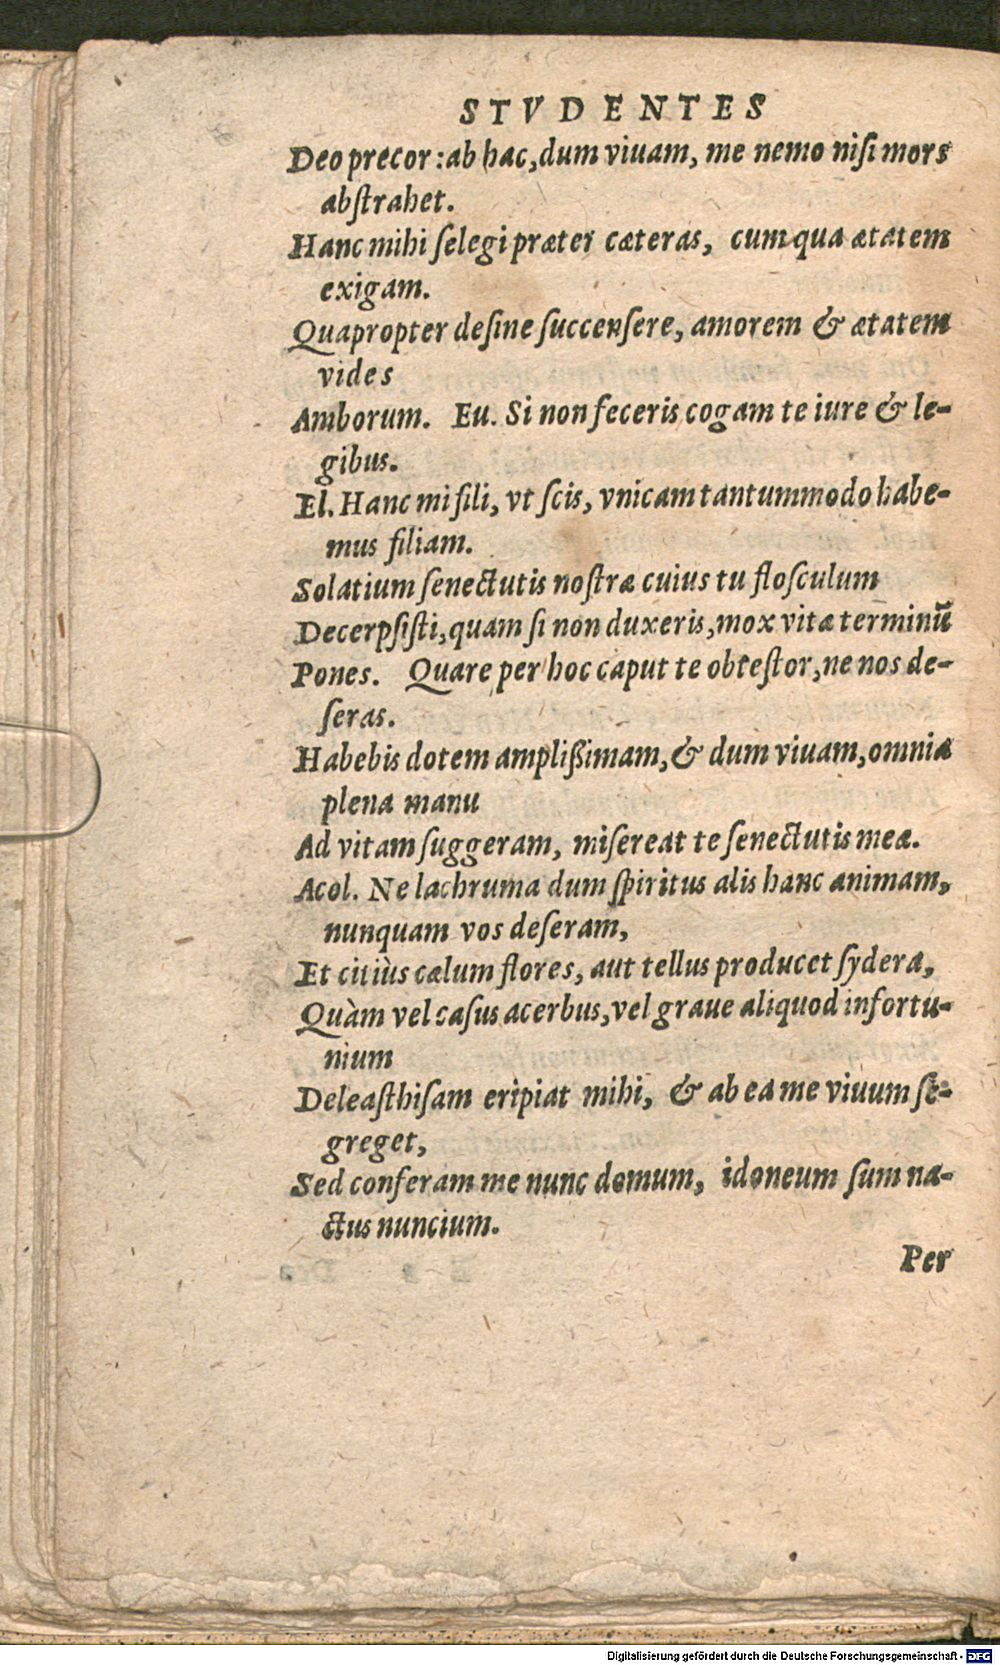 STVDENTES
Deo precor: ab hac, dum viuam, me nemo niſi mors
abſtrahet.
Hanc mihi ſelegi præter cæteras, cum qua ætatem
exigam.
Quapropter deſine ſuccenſere, amorem & ætatem
vides
Amborum. Eu. Si non feceris cogam te iure & le-
gibus.
El. Hanc mi fili, vt ſcis, vnicam tantummodo habe-
mus filiam.
Solatium ſenectutis noſtræ cuius tu floſculum
Decerpſiſti, quam ſi non duxeris, mox vitæ terminū
Pones. Quare per hoc caput te obteſtor, ne nos de-
ſeras.
Habebis dotem ampliſsimam, & dum viuam, omnia
plena manu
Ad vitam ſuggeram, miſereat te ſenectutis meæ.
Acol. Ne lachruma dum ſpiritus alis hanc animam,
nunquam vos deſeram,
Et citiùs cælum flores, aut tellus producet ſydera,
Quàm vel caſus acerbus, vel graue aliquod infortu-
nium
Deleaſthiſam eripiat mihi, & ab ea me viuum ſe-
greget,
Sed conferam me nunc domum, idoneum ſum na-
ctus nuncium.
Per
Digitalisierung gefördert durch die Deutsche Forschungsgemeinschaft - DFG